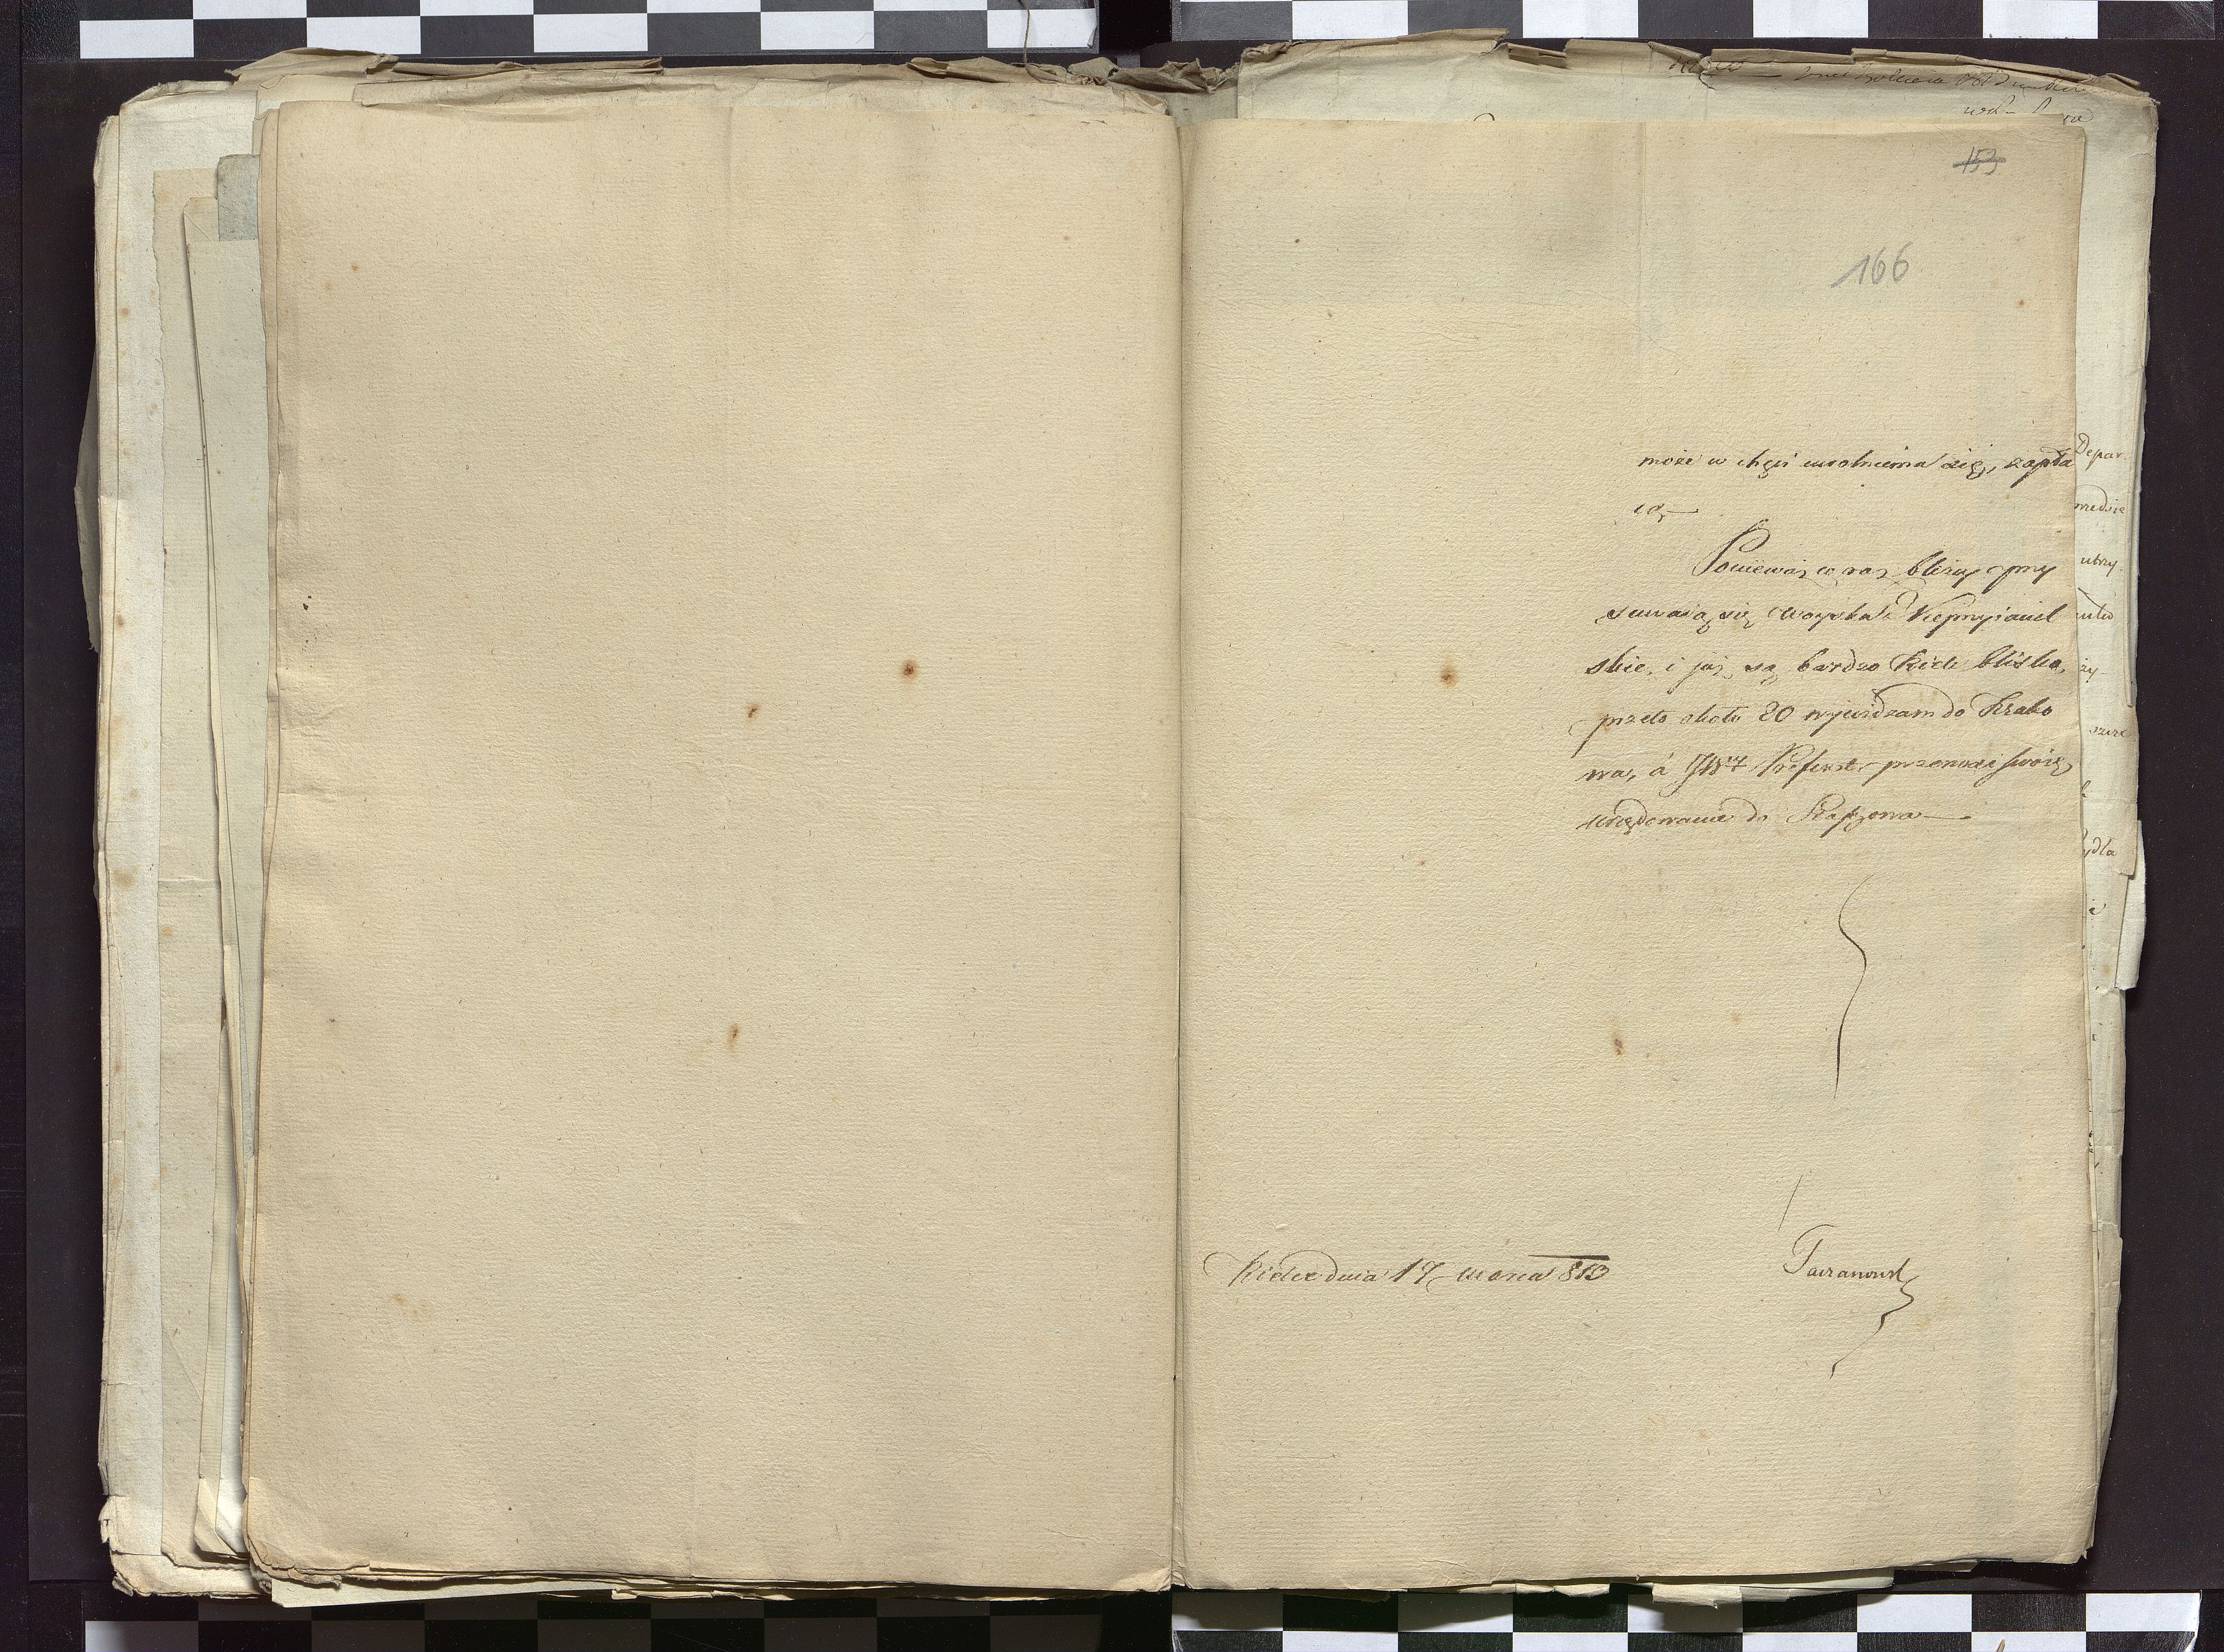 153
166
może w chęci uwolnienia się, zapła
cą,—
Ponieważ co raz bliżey przy
suwaią się woyska Nieprzyiaciel
skie, i już są bardzo Kielc blisko,
przeto około 20 wyieżdzam do Krako
wa, á JW Prefekt przenosi swoie
urzędowanie do
Kielce dnia 17 Marca 813